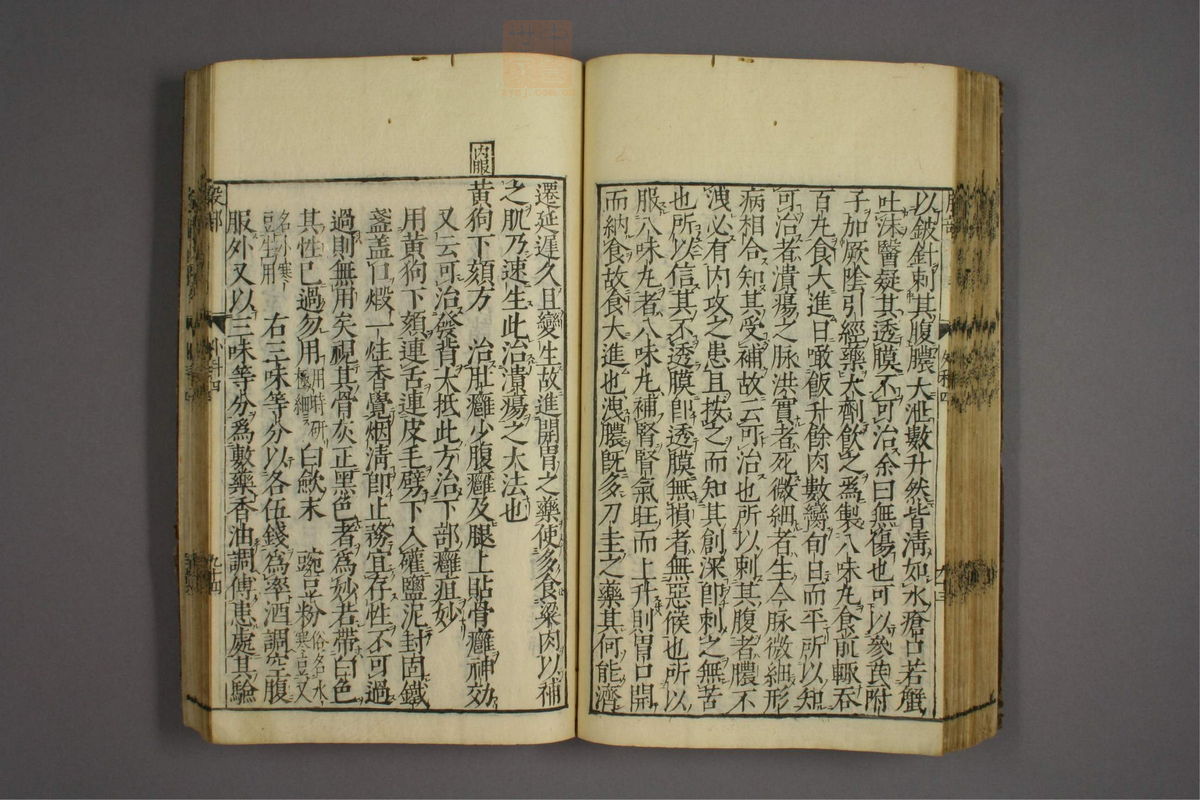 以鈹針刺其腹膿大泄數升然皆清如水瘡口若蟹
吐沫醫疑其透膜不可治余曰無傷也可以參芪附
子加厥陰引經藥大劑飲之爲製八味丸食前輒吞
百丸食大進日噉飯升餘肉數臠旬日而平所以知
可治者潰瘍之脉洪實者死微細者生今脉微細形
病相合知其受補故云可治也所以刺其腹者膿不
洩必有内攻之患且按之而知其創深卽刺之無苦
也所以信其不透膜卽透膜無損者無惡候也所以
服八味丸者八味丸補腎腎氣旺而上升則胃口開
而納食故食大進也洩膿旣多刀圭之藥其何能濟
遷延遲久且變生故進開胃之藥使多食粱肉以補
之肌乃速生此治潰瘍之大法也
内服
黄狗下頦方　治肚癰少腹癰及腿上貼骨癰神効
又云可治發背大抵此方治下部癰疽妙
用黄狗下頦連舌連皮毛劈下入罐鹽泥封固鐵
盞盖口煅一炷香覺烟清卽止務宜存性不可過
過則無用矣視其骨灰正黒色者爲妙若帶白色
其性已過勿用用時研極細白蘞末　豌豆粉俗名水寒豆又
名小寒豆生用　右三味等分以各伍錢爲率酒調空腹
服外又以三味等分爲敷藥香油調傅患處其驗